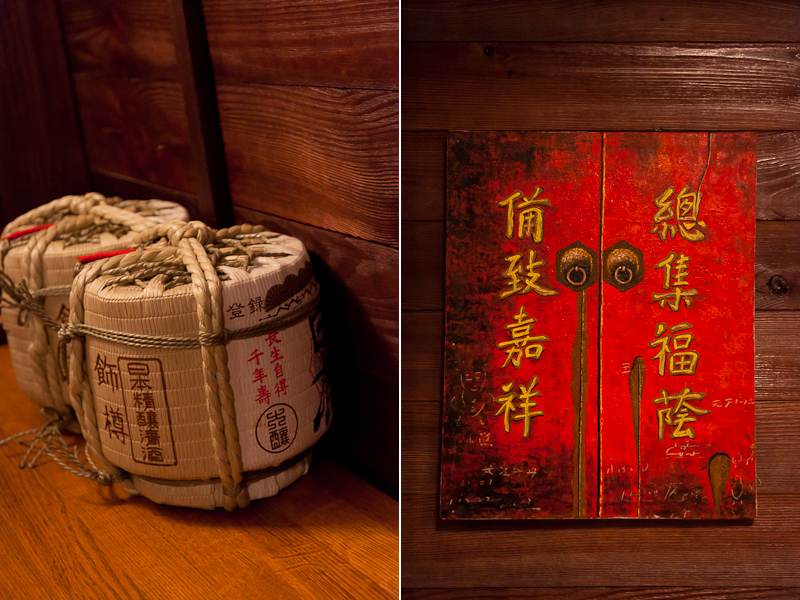 登録
長生自得
千年寿
飾樽
日本精醸清酒
醸
總集福蔭
備致嘉祥